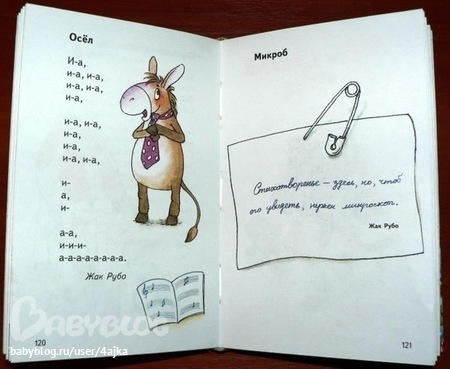 Осёл
И-а,
и-а, и-а,
и-а, и-а,
и-а,
и-а, и-а,
и-а,
и-а,
и-а, и-а,
и-
а,
и-
а-а,
и-и-и-
а-а-а-а-а-а-а.
Жак Рубо
120
Микроб
Стихотворенье – здесь, но, чтоб
его увидеть, нужен микроскоп.
Жак Рубо
121
BABYBLOG
babyblog.ru/user/4ajka